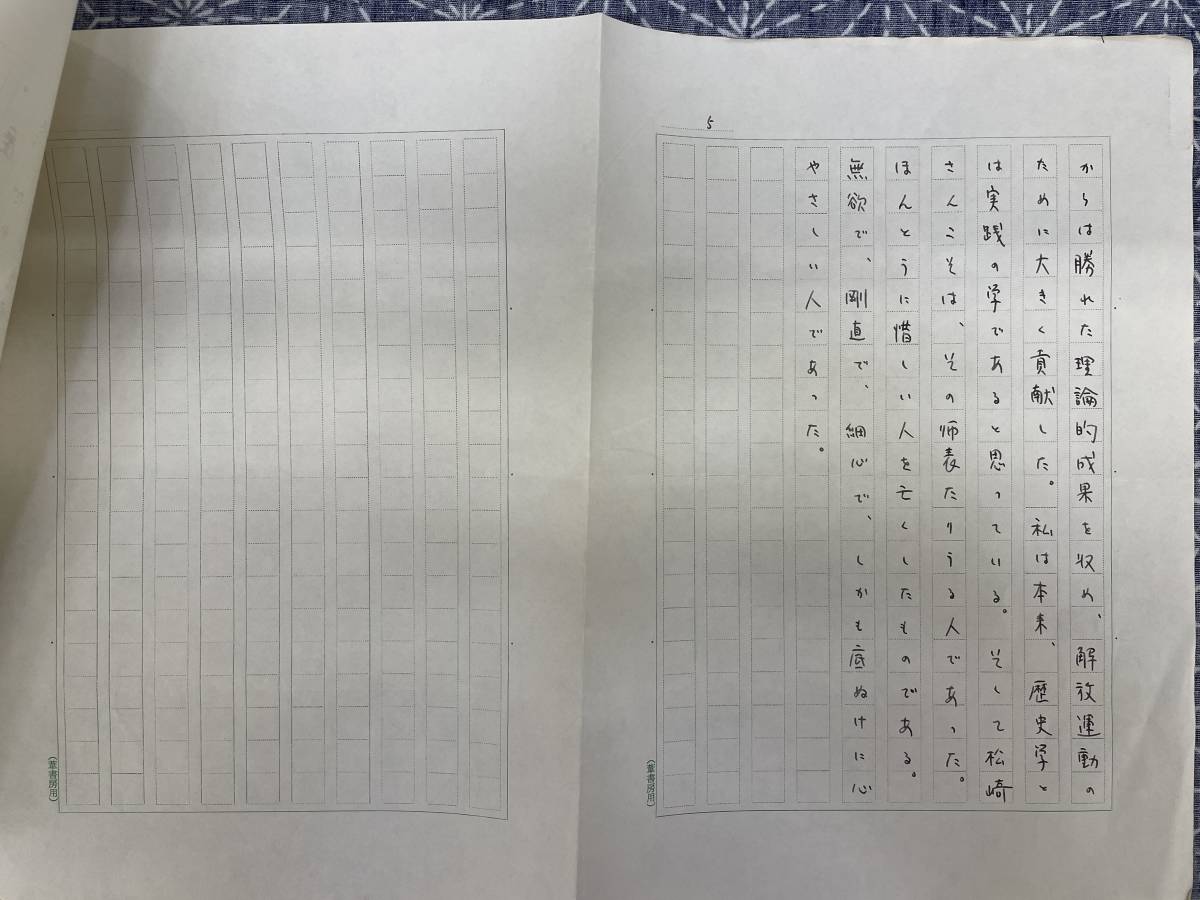 5
からは勝れた理論的成果を収め、解放運動の
ために大きく貢献した。私は本来、歴史学と
は実践の学であると思っている。そして松崎
さんこそは、その师表たりうる人であった。
ほんとうに惜しい人を亡くしたものである。
無欲で、剛直で、細心で、しかも底ぬけに心
やさしい人であった。
(葦書房用)
(葦書房用)